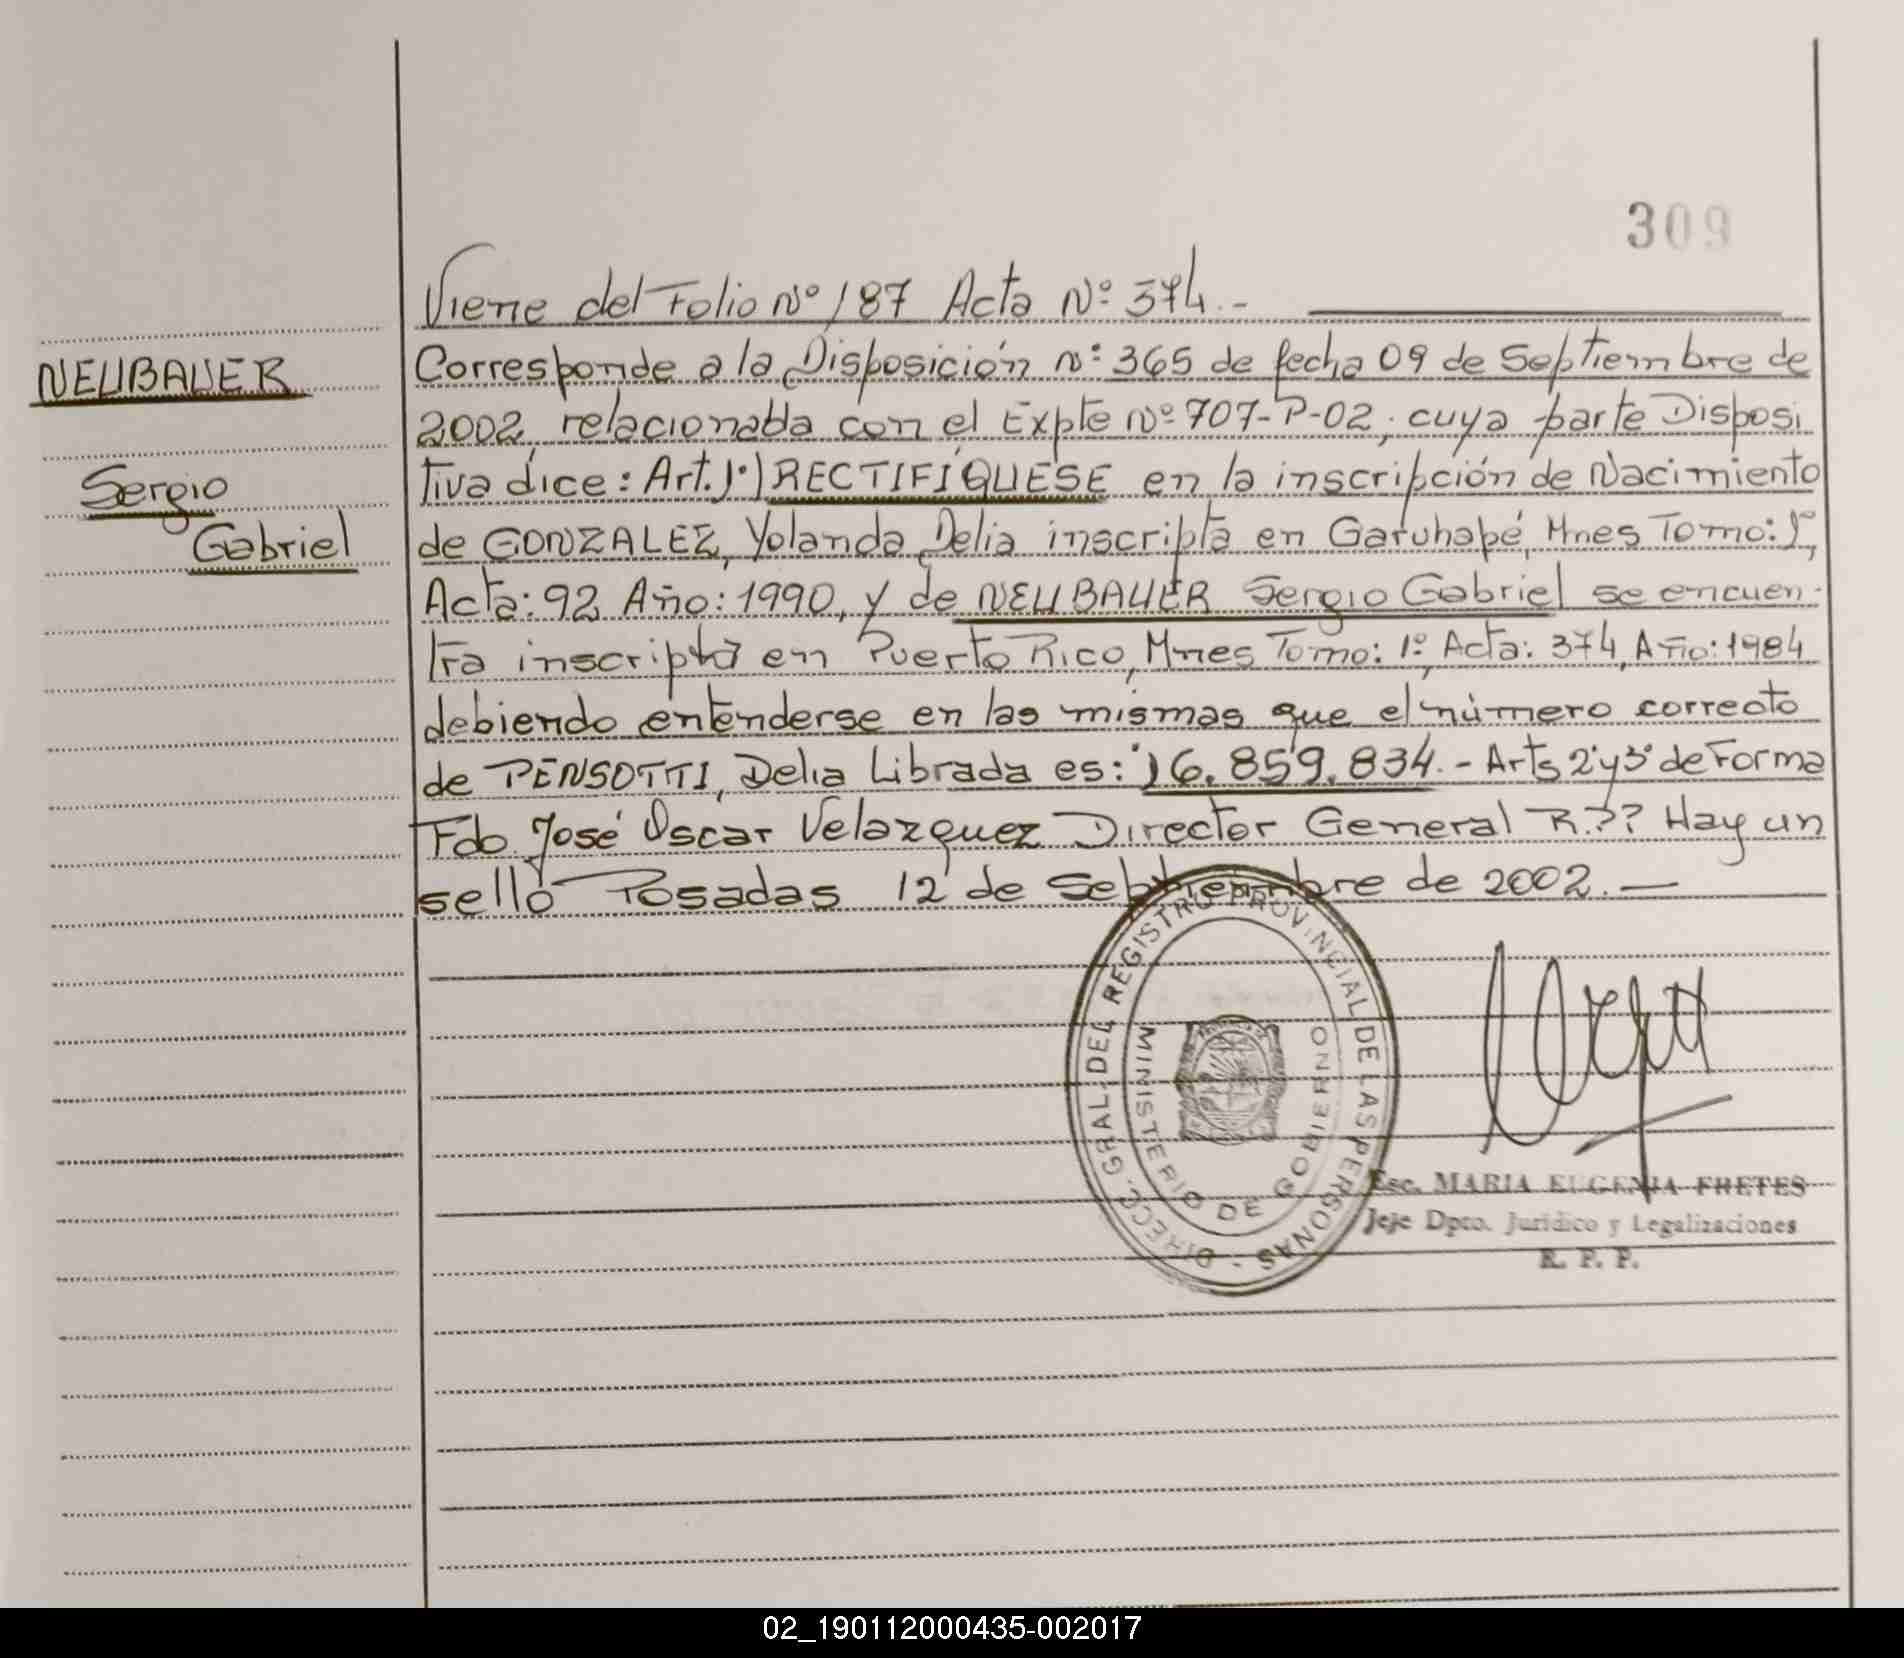 309
Viene del Folio Nº 187 Acta Nº 374.-
NEUBAUER
Sergio
Gabriel
Corresponde a la Disposición nº 365 de fecha 09 de Septiembre de
2002, relacionada con el Expte Nº 707-P-02, cuya parte Disposi
tiva dice: Art. 1º) RECTIFÍQUESE en la inscripción de Nacimiento
de GONZALEZ, Yolanda Delia inscripta en Garuhapé, Mnes Tomo: 1º,
Acta: 92 Año: 1990, y de NEUBAUER Sergio Gabriel se encuen-
tra inscripto en Puerto Rico, Mnes Tomo: 1º, Acta: 374, Año: 1984
debiendo entenderse en las mismas que el número correcto
de PENSOTTI, Delia Librada es: 16.859.834.- Arts 2º y 3º de Forma
Fdo. José Oscar Velazquez Director General R.P.P. Hay un
sello Posadas 12 de Septiembre de 2002.—
DIRECC. GRAL. DEL REGISTRO PROVINCIAL DE LAS PERSONAS -
MINISTERIO DE GOBIERNO
Esc. MARIA EUGENIA FRETES
Jefe Dpto. Jurídico y Legalizaciones
R. P. P.
02_190112000435-002017